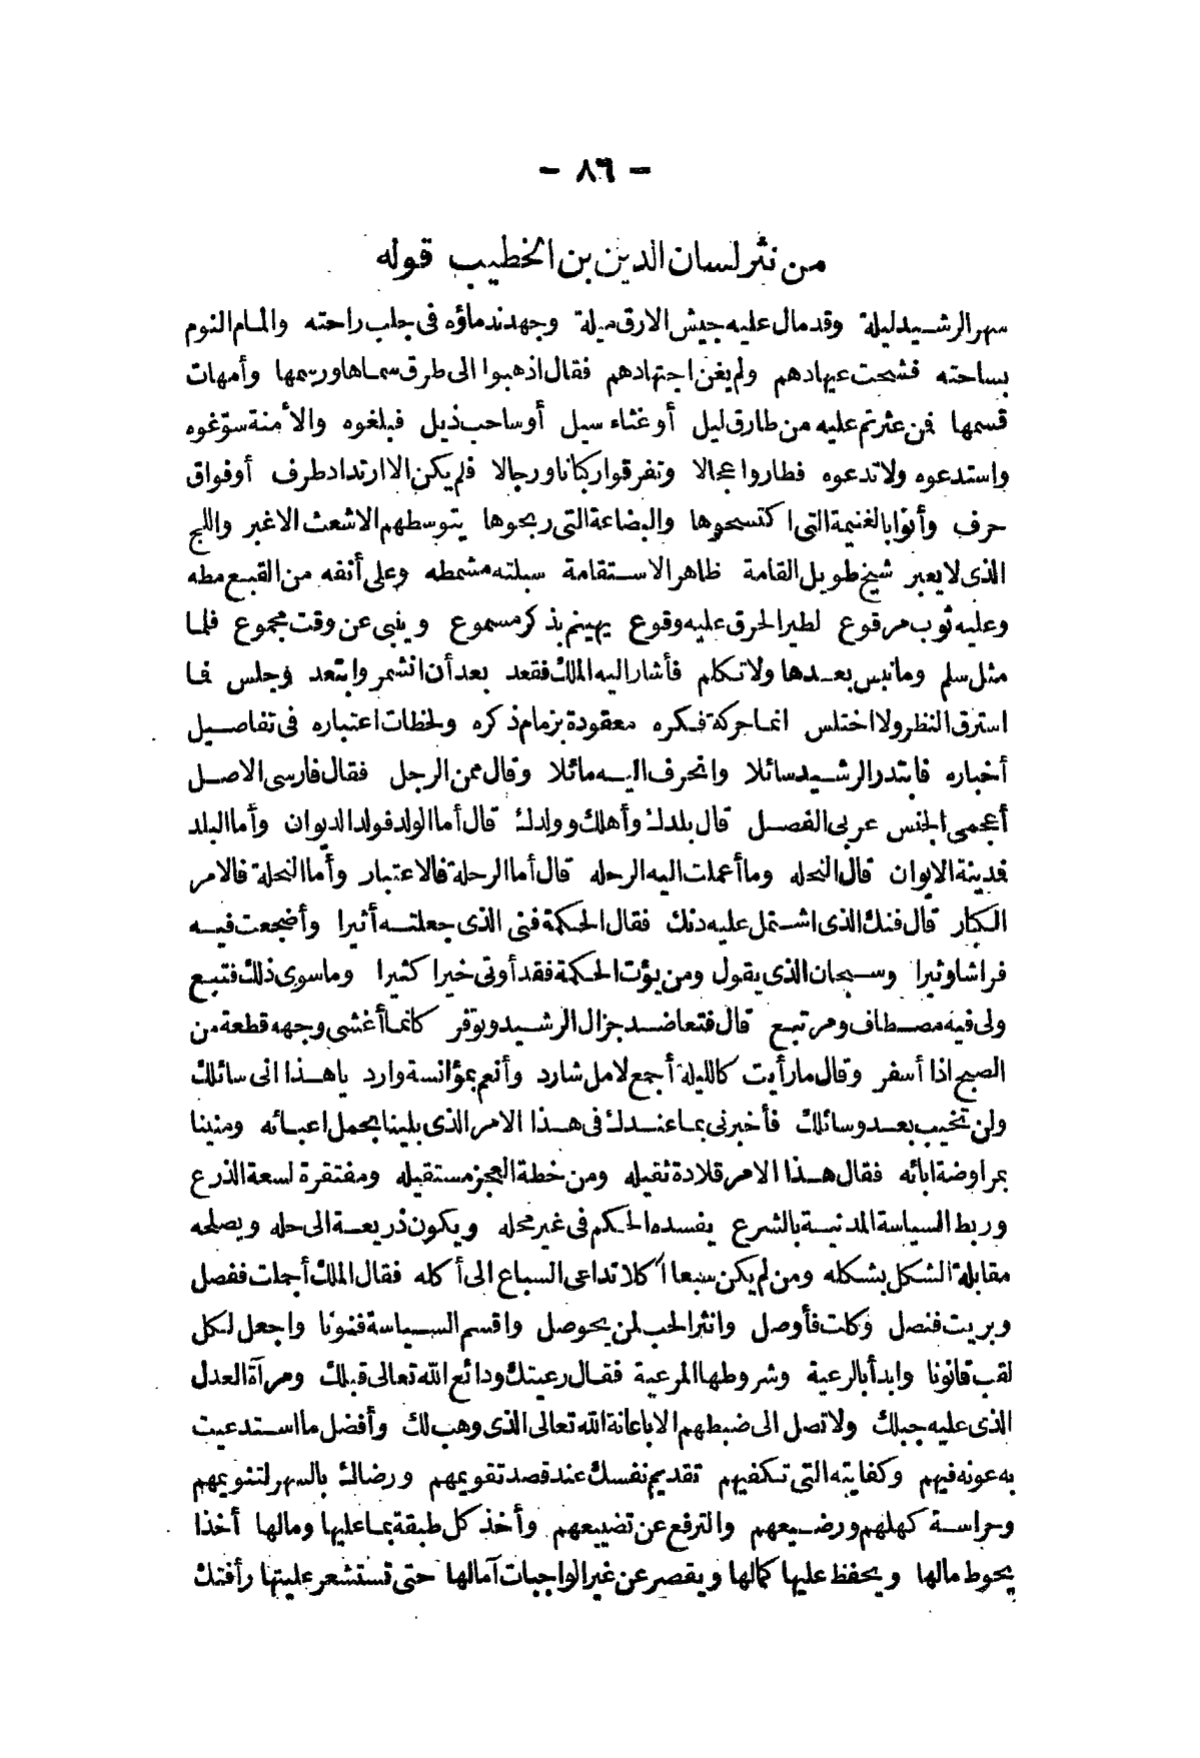 - ٨٦ -
من نثر لسان الدين بن الخطيب قوله
سهر الرشيد ليلة وقد مال عليه جيش الارق ميلة وجهد ندماؤه فى جلب راحته والمام النوم
بساحته فشحت عهادهم ولم يغن اجتهادهم فقال اذهبوا الى طرق سماها ورسمها وأمهات
قسمها فمن عثرتم عليه من طارق ليل أو غثاء سيل أو ساحب ذيل فبلغوه والأمنة سوّغوه
واستدعوه ولا تدعوه فطاروا عجالا وتفرقوا ركبانا ورجالا فلم يكن الا ارتداد طرف أو فواق
حرف وأتوا بالغنيمة التى اكتسحوها والبضاعة التى ربحوها يتوسطهم الاشعث الاغبر واللج
الذى لا يعبر شيخ طويل القامة ظاهر الاستقامة سبلته مشمطه وعلى أنفه من القبع مطه
وعليه ثوب مرقوع لطير الحرق عليه وقوع يهينم بذكر مسموع وينبى عن وقت مجموع فلما
مثل سلم وما نبس بعدها ولا تكلم فأشار اليه الملك فقعد بعد أن انشمر وابتعد وجلس فما
استرق النظر ولا اختلس انما حركة فكره معقودة بزمام ذكره ولحظات اعتباره فى تفاصيل
أخباره فابتدر الرشيد سائلا وانحرف اليه مائلا وقال ممن الرجل فقال فارسى الاصل
أعجمى الجنس عربى الفصل قال بلدك وأهلك وولدك قال أما الولد فولد الديوان وأما البلد
فمدينة الايوان قال النحله وما أعملت اليه الرحله قال أما الرحلة فالاعتبار وأمّا النحلة فالامر
الكبار قال فنك الذى اشتمل عليه دنك فقال الحكمة فنى الذى جعلته أثيرا وأضجعت فيه
فراشا وثيرا وسبحان الذى يقول ومن يؤت الحكمة فقد أوتى خيرا كثيرا وما سوى ذلك فتبع
ولى فيه مصطاف ومرتبع قال فتعاضد جزال الرشيد وتوفر كانما أغشى وجهه قطعة من
الصبح اذا أسفر وقال ما رأيت كالليلة أجمع لامل شارد وأنعم بمؤانسة وارد يا هذا انى سائلك
ولن تخيب بعد وسائلك فأخبرنى بما عندك فى هذا الامر الذى بلينا بحمل اعبائه ومنينا
بمراوضة ابائه فقال هذا الامر قلادة ثقيله ومن خطة العجز مستقيله ومفتقرة لسعة الذرع
وربط السياسة المدنية بالشرع يفسده الحكم فى غير محله ويكون ذريعة الى حله ويصلحه
مقابلة الشكل بشكله ومن لم يكن سبعا آكلا تداعى السباع الى أكله فقال الملك أجملت ففصل
وبريت فنصل وكلت فأوصل وانثر الحب لمن يحوصل واقسم السياسة فنونا واجعل لكل
لقب قانونا وابدأ بالرعية وشروطها المرعية فقال رعيتك ودائع الله تعالى قبلك ومرآة العدل
الذى عليه جبلك ولا تصل الى ضبطهم الا باعانة الله تعالى الذى وهب لك وأفضل ما استدعيت
به عونه فيهم وكفايته التى تكفيهم تقديم نفسك عند قصد تقويمهم ورضاك بالسهر لتنويمهم
وحراسة كهلهم ورضيعهم والترفع عن تضييعهم وأخذ كل طبقة بما عليها ومالها أخذا
يحوط مالها ويحفظ عليها كمالها ويقصر عن غير الواجبات آمالها حتى تستشعر عليتها رأفتك